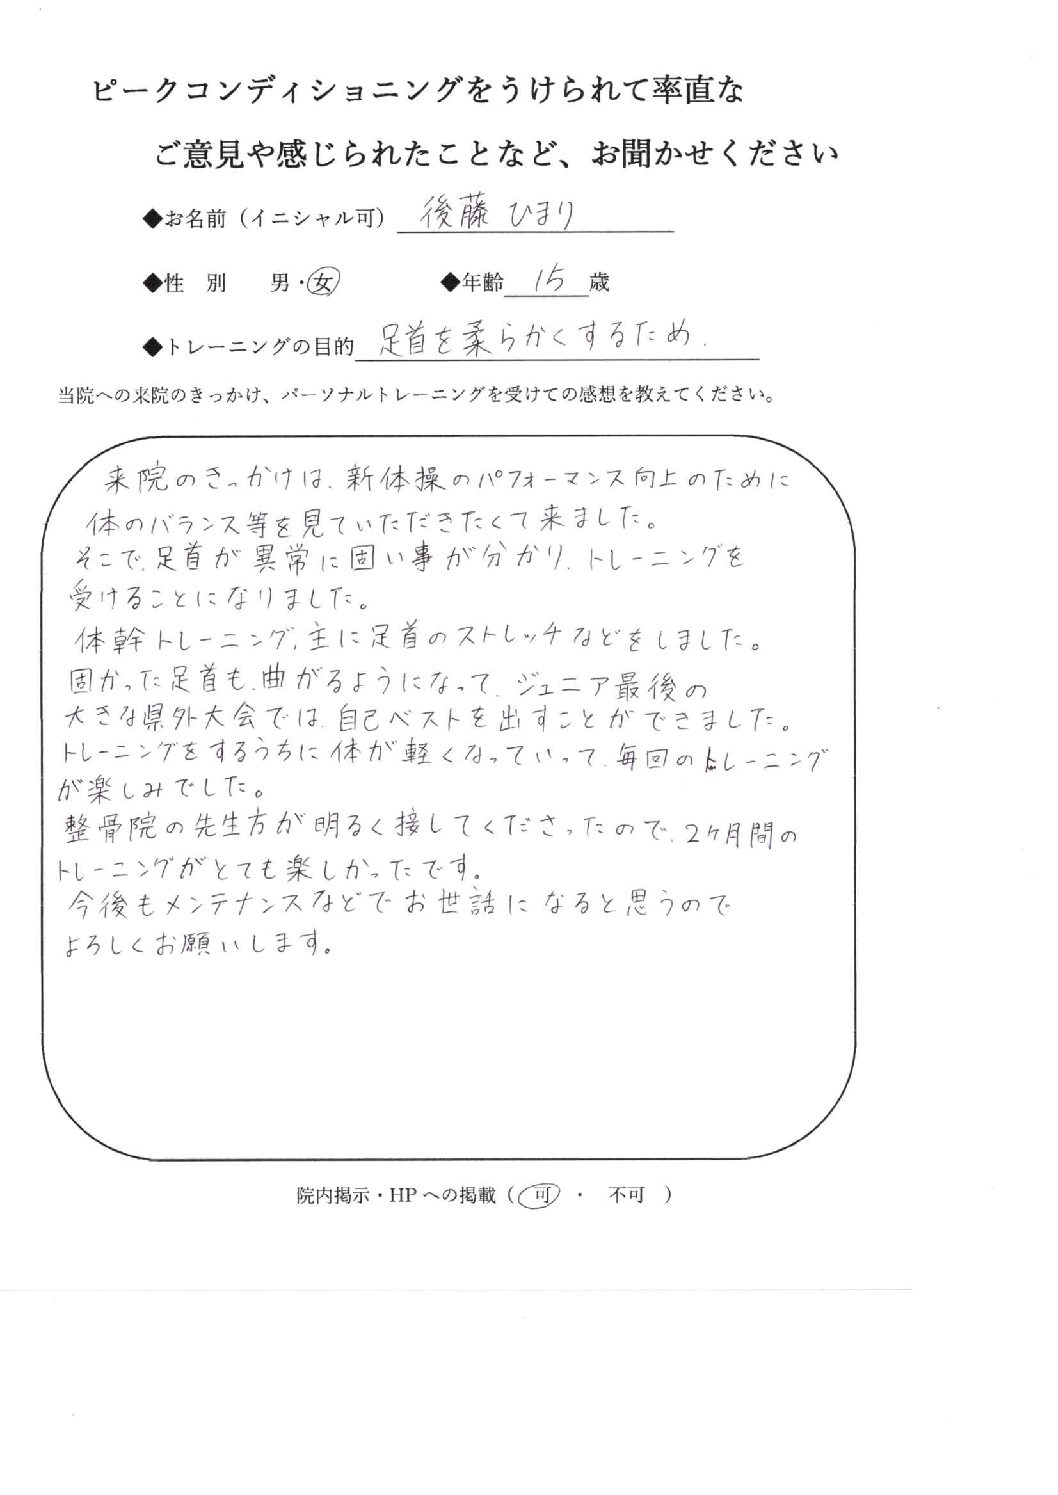 ピークコンディショニングをうけられて率直な
ご意見や感じられたことなど、お聞かせください
◆お名前（イニシャル可） 後藤 ひまり
◆性 別 男・女 ◆年齢 15 歳
◆トレーニングの目的 足首を柔らかくするため.
当院への来院のきっかけ、パーソナルトレーニングを受けての感想を教えてください。
来院のきっかけは、新体操のパフォーマンス向上のために
体のバランス等を見ていただきたくて来ました。
そこで、足首が異常に固い事が分かり、トレーニングを
受けることになりました。
体幹トレーニング、主に足首のストレッチなどをしました。
固かった足首も、曲がるようになって、ジュニア最後の
大きな県外大会では、自己ベストを出すことができました。
トレーニングをするうちに体が軽くなっていって、毎回のトレーニング
が楽しみでした。
整骨院の先生方が明るく接してくださったので、2ヶ月間の
トレーニングがとても楽しかったです。
今後もメンテナンスなどでお世話になると思うので
よろしくお願いします。
院内掲示・HPへの掲載（ 可 ・ 不可 ）